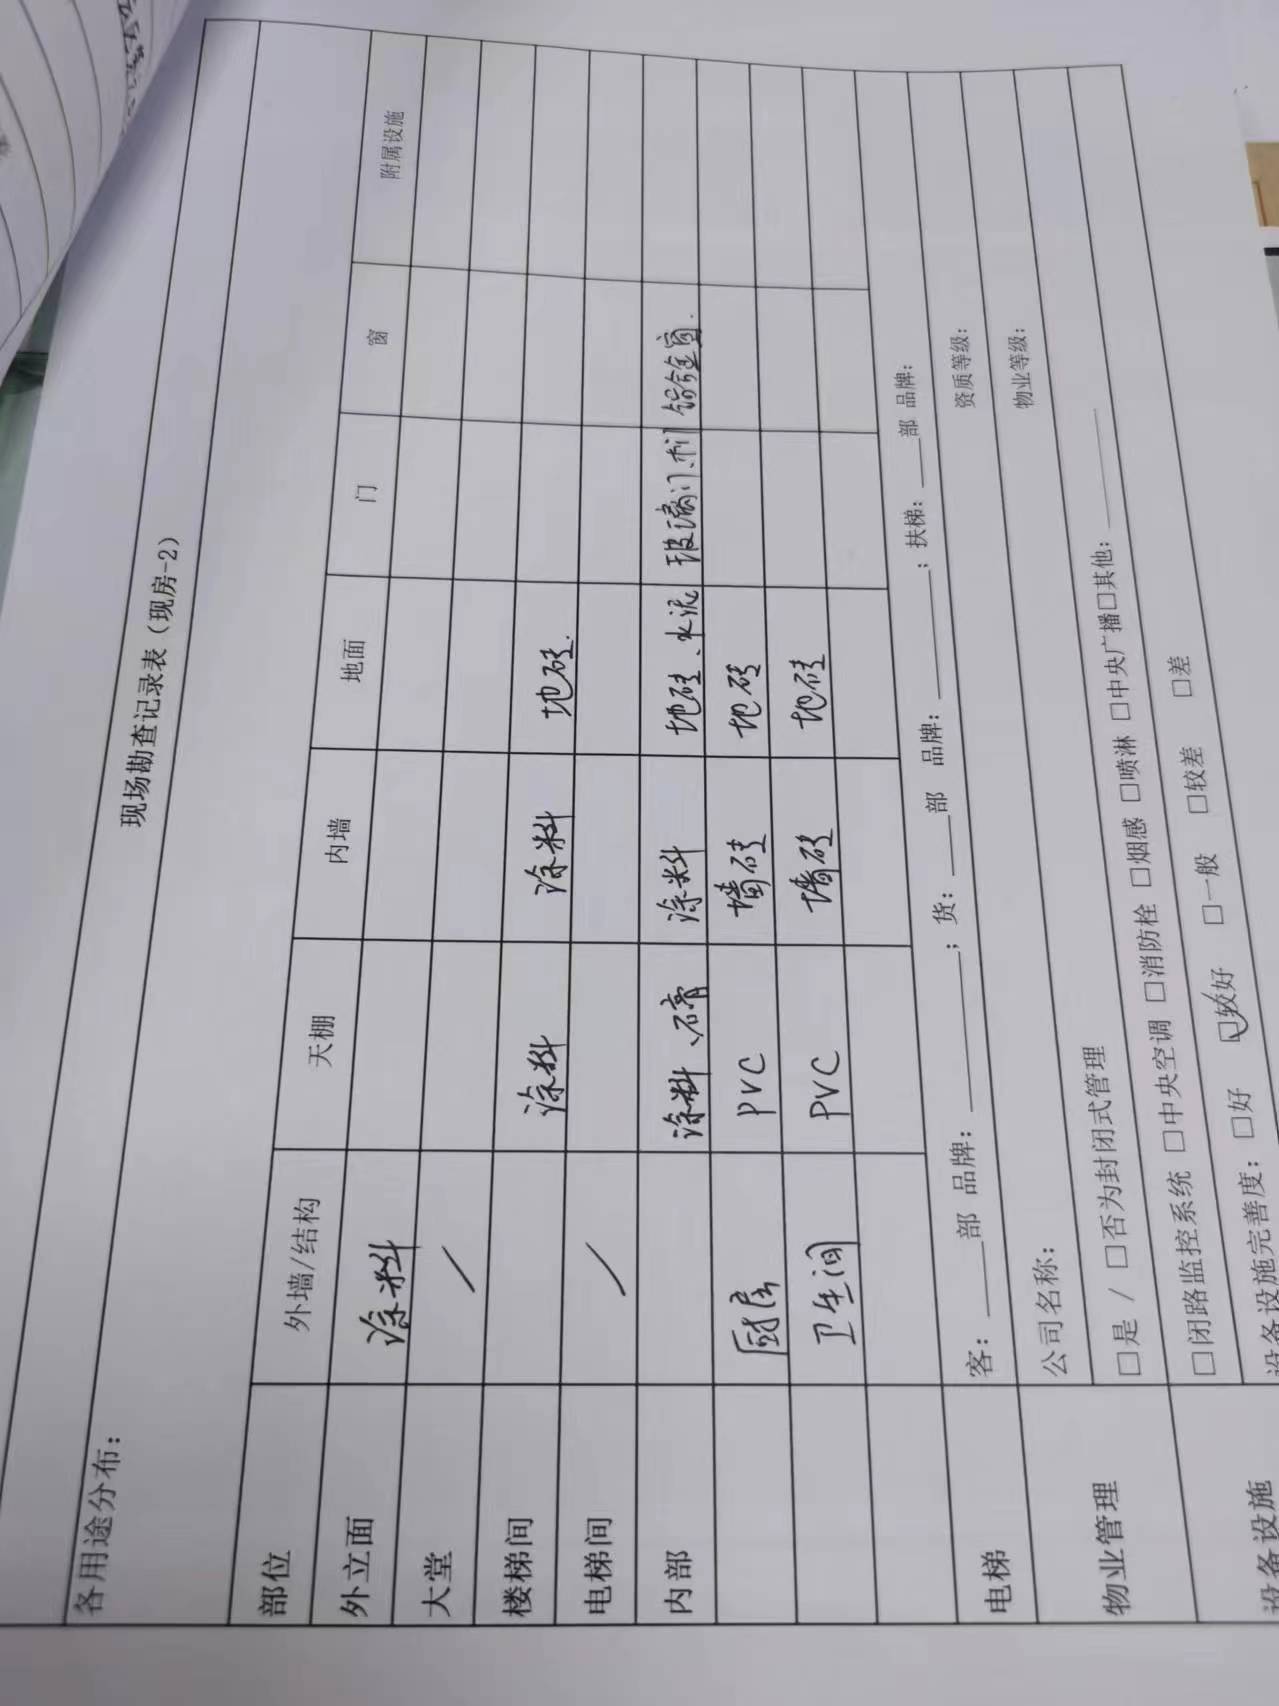 现场勘查记录表（现房-2）
各用途分布：
部位 外墙/结构 天棚 内墙 地面 门 窗 附属设施
外立面 涂料
大堂 /
楼梯间 涂料 涂料 地砖.
电梯间 /
内部 涂料、石膏 涂料 地砖、水泥 玻璃门、木门 铝合金窗.
厨房 PVC 墙砖 地砖
卫生间 PVC 墙砖 地砖
电梯 客：____部 品牌：________； 货：____部 品牌：________； 扶梯：____部 品牌：
公司名称： 资质等级：
物业管理 □是 / □否为封闭式管理 物业等级：
□闭路监控系统 □中央空调 □消防栓 □烟感 □喷淋 □中央广播 □其他：________
设备设施 设备设施完善度： □好 ☑较好 □一般 □较差 □差